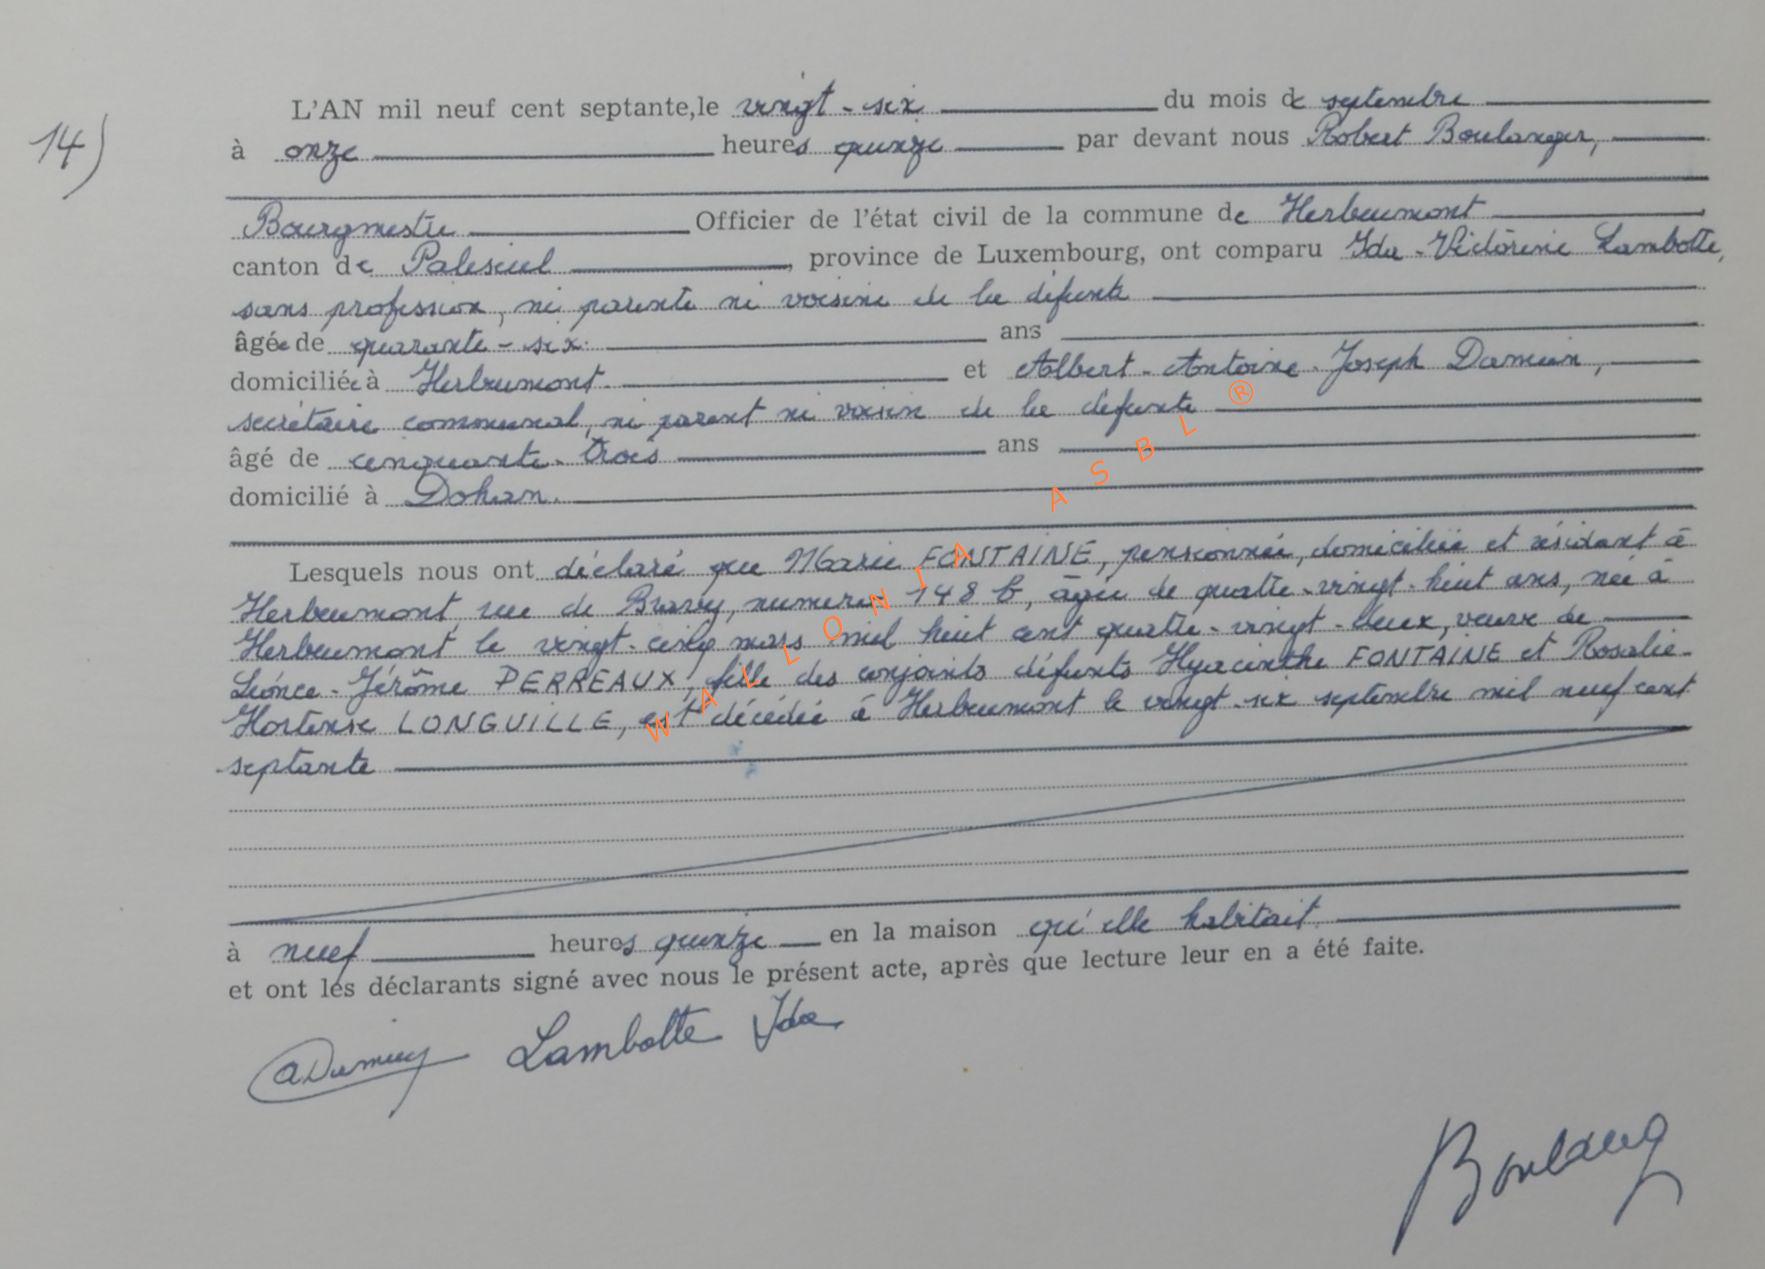 14)
L'AN mil neuf cent septante, le vingt-six du mois de septembre
à onze heures quinze par devant nous Robert Boulanger,
Bourgmestre Officier de l'état civil de la commune de Herbeumont
canton de Paliseul, province de Luxembourg, ont comparu Ida-Victorine Lambotte,
sans profession, ni parente ni voisine de la défunte
âgée de quarante-six ans
domiciliée à Herbeumont et Albert-Antoine-Joseph Damien,
secrétaire communal, ni parent ni voisin de la défunte
âgé de cinquante-trois ans
domicilié à Dohan.
Lesquels nous ont déclaré que Marie FONTAINE, pensionnée, domiciliée et résidant à
Herbeumont, rue de Bravy, numéro 148 b, âgée de quatre-vingt-huit ans, née à
Herbeumont le vingt-cinq mars mil huit cent quatre-vingt-deux, veuve de
Léonce-Jérôme PERREAUX, fille des conjoints défunts Hyacinthe FONTAINE et Rosalie-
Hortense LONGUILLE, est décédée à Herbeumont le vingt-six septembre mil neuf cent
septante
à neuf heures quinze en la maison qu'elle habitait
et ont les déclarants signé avec nous le présent acte, après que lecture leur en a été faite.
ADamien Lambotte Ida
Boulang
WALLONIA ASBL ®